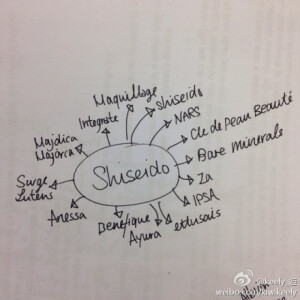 Maquillage
Integrate
shiseido
NARS
Majolica
Majorca
Cle de Peau Beauté
Bare minerals
Shiseido
Za
Surge
Lutens
IPSA
Anessa
Benefique
Ayura
etdusais
@keely
weibo.com/kiwikeely